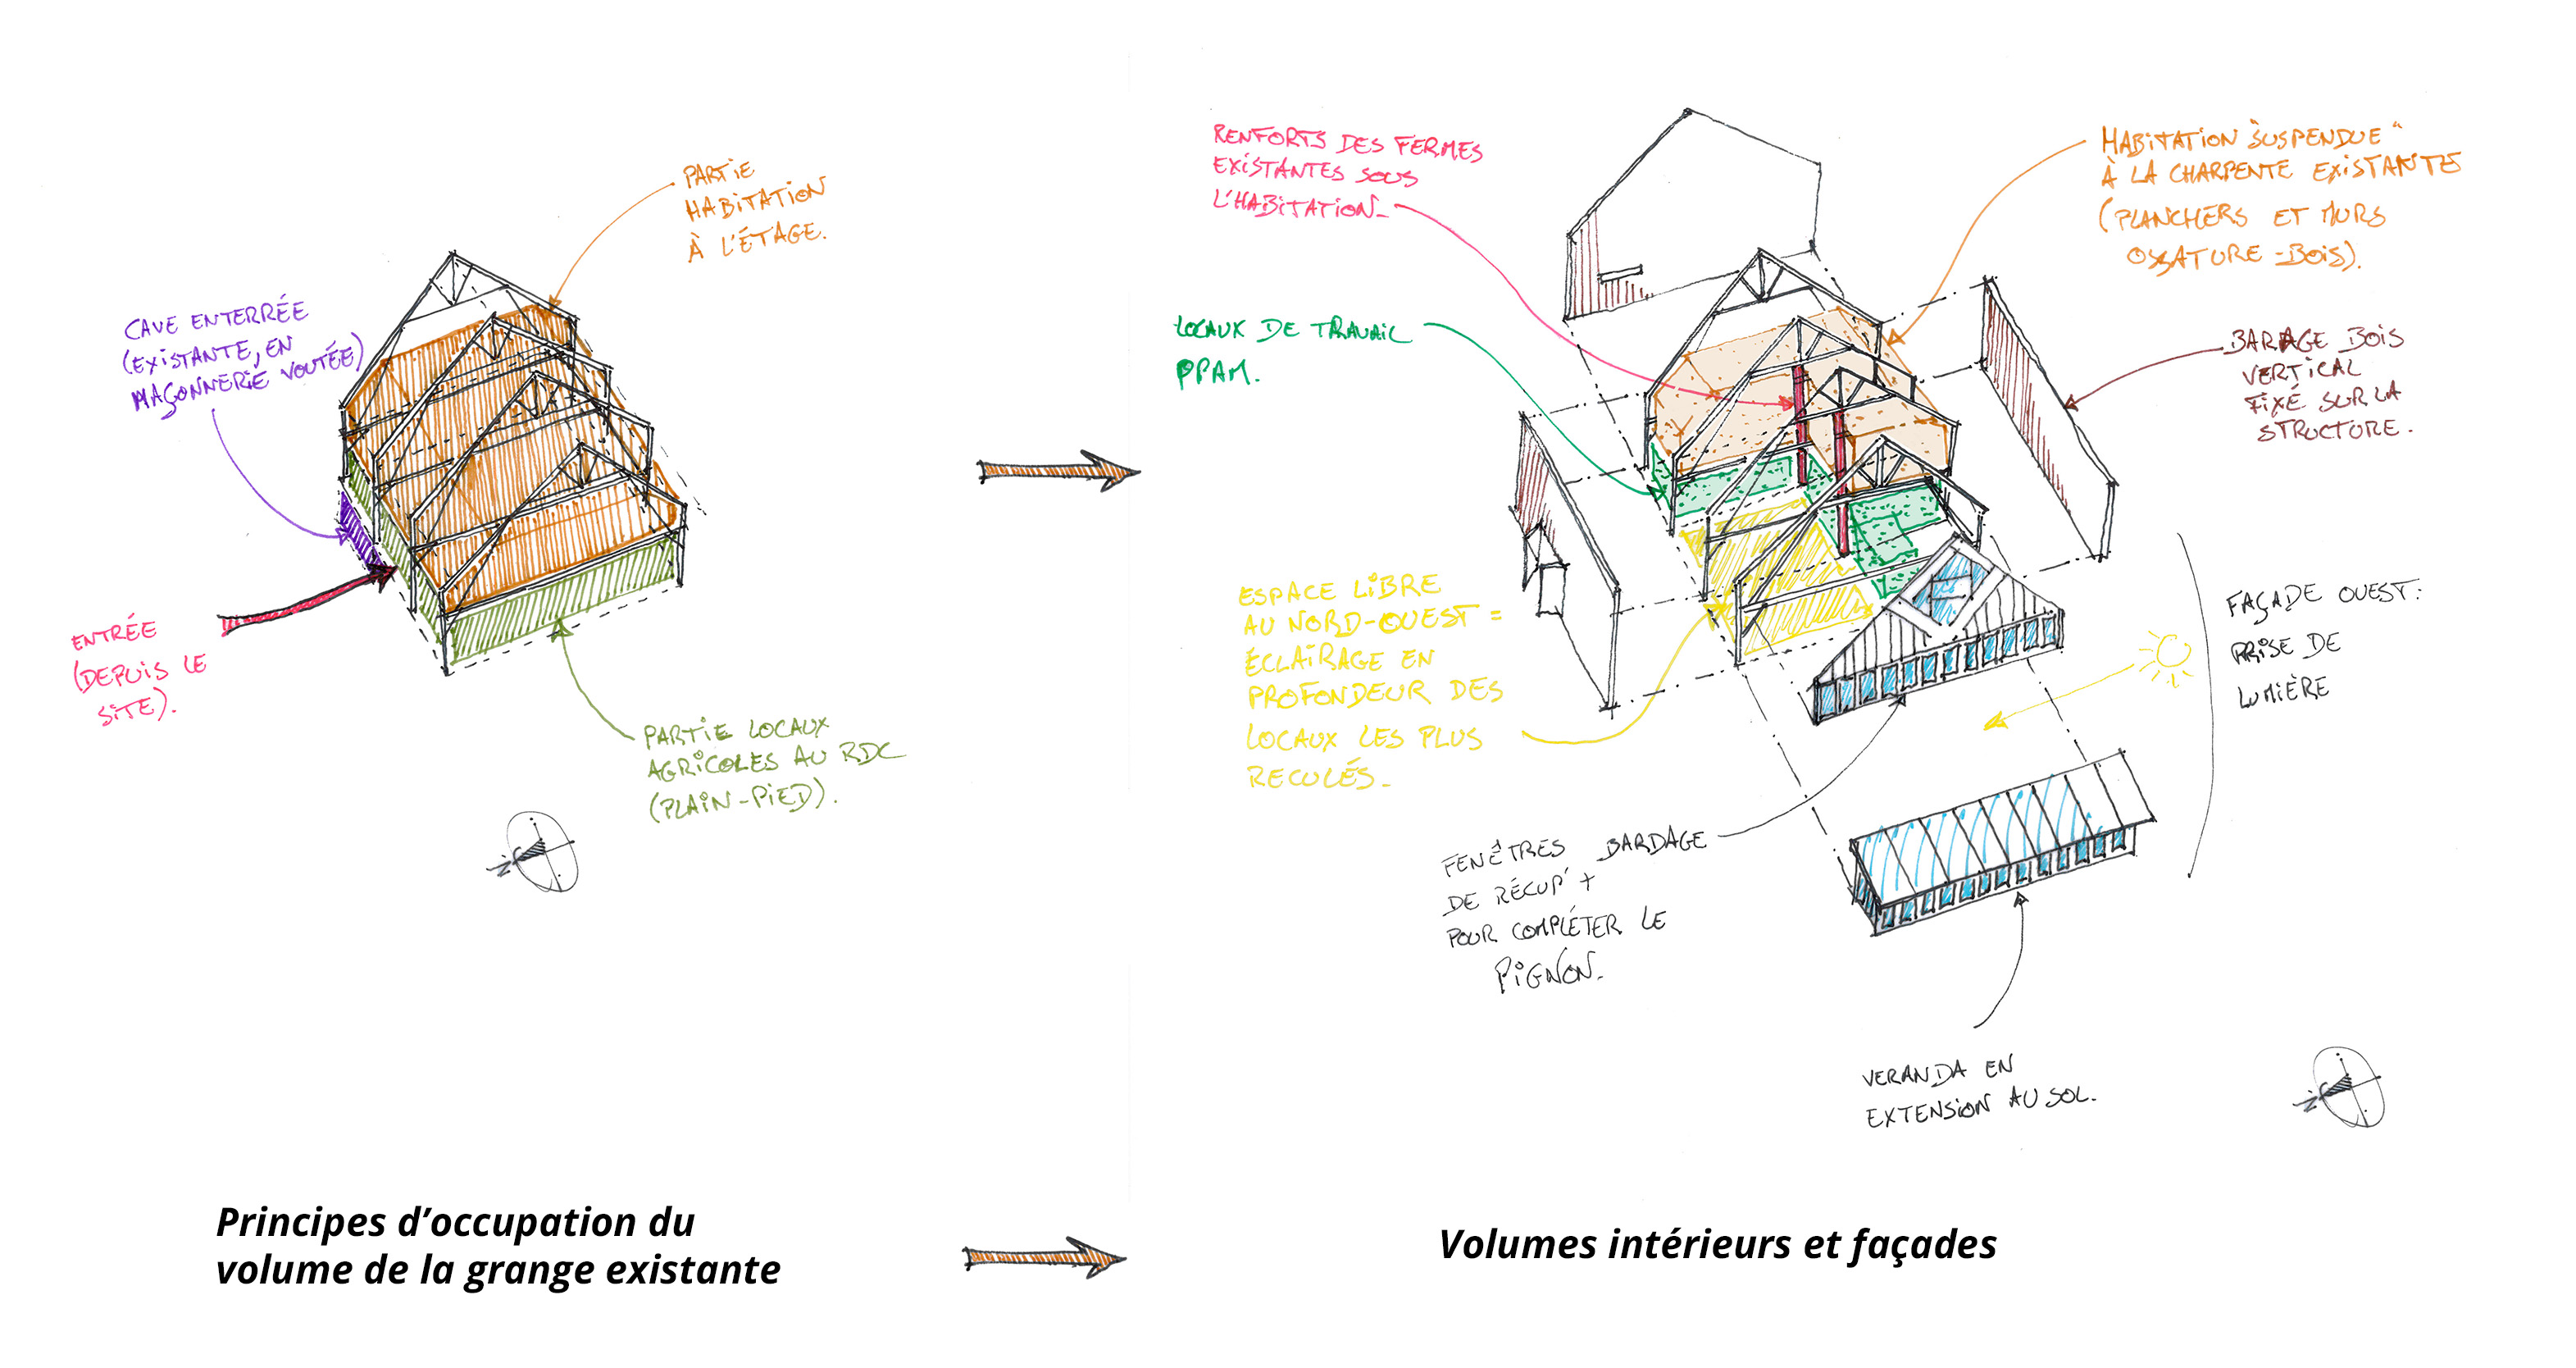 PARTIE
HABITATION
À L'ÉTAGE.
CAVE ENTERRÉE
(EXISTANTE, EN
MAÇONNERIE VOUTÉE)
ENTRÉE
(DEPUIS LE
SITE).
PARTIE LOCAUX
AGRICOLES AU RDC
(PLAIN-PIED).
N
Principes d'occupation du
volume de la grange existante
RENFORTS DES FERMES
EXISTANTES SOUS
L'HABITATION_
LOCAUX DE TRAVAIL
PPAM.
HABITATION "SUSPENDUE"
À LA CHARPENTE EXISTANTE
(PLANCHERS ET MURS
OSSATURE-BOIS).
BARDAGE BOIS
VERTICAL
FIXÉ SUR LA
STRUCTURE.
ESPACE LIBRE
AU NORD-OUEST =
ÉCLAIRAGE EN
PROFONDEUR DES
LOCAUX LES PLUS
RECULÉS_
FAÇADE OUEST:
PRISE DE
LUMIÈRE
FENÊTRES BARDAGE
DE RÉCUP' +
POUR COMPLÉTER LE
PIGNON_
VERANDA EN
EXTENSION AU SOL.
N
Volumes intérieurs et façades